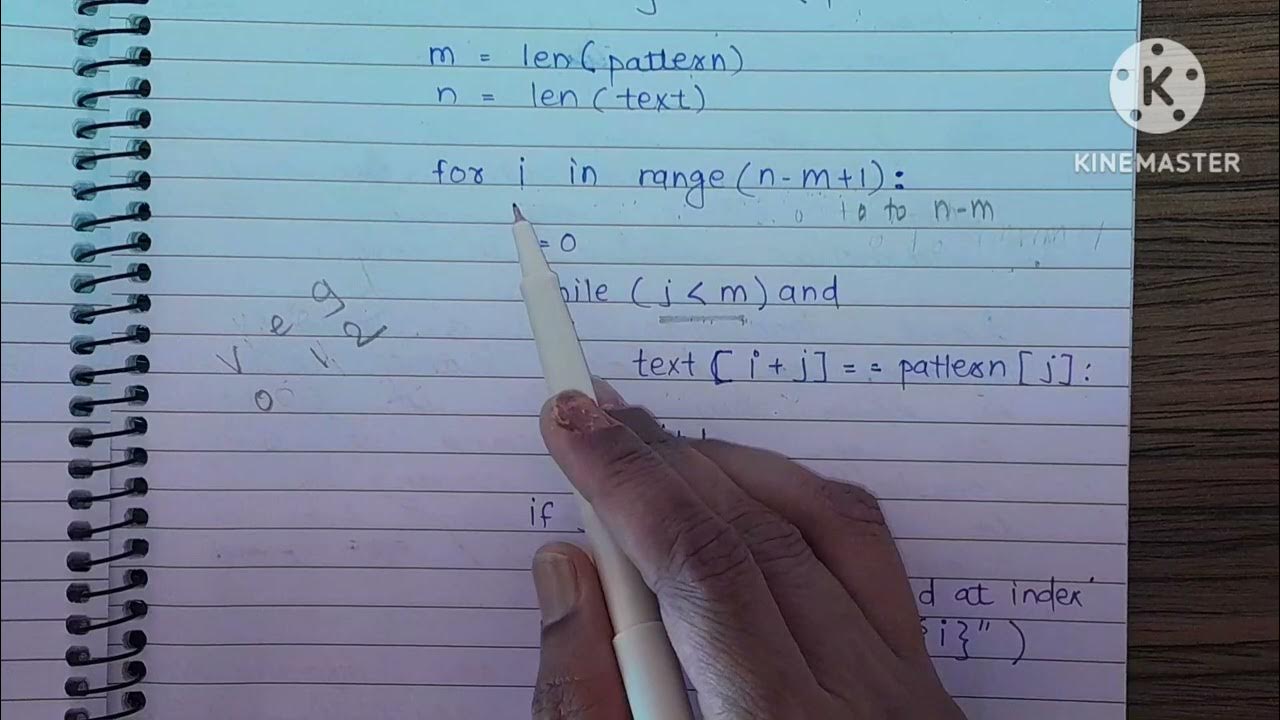 m = len(pattern)
n = len(text)
for i in range(n-m+1):
0 to n-m
= 0
while (j < m) and
text [i+j] == pattern [j]:
if
d at index
i}")
K
KINEMASTER
g
e 2
v v
0